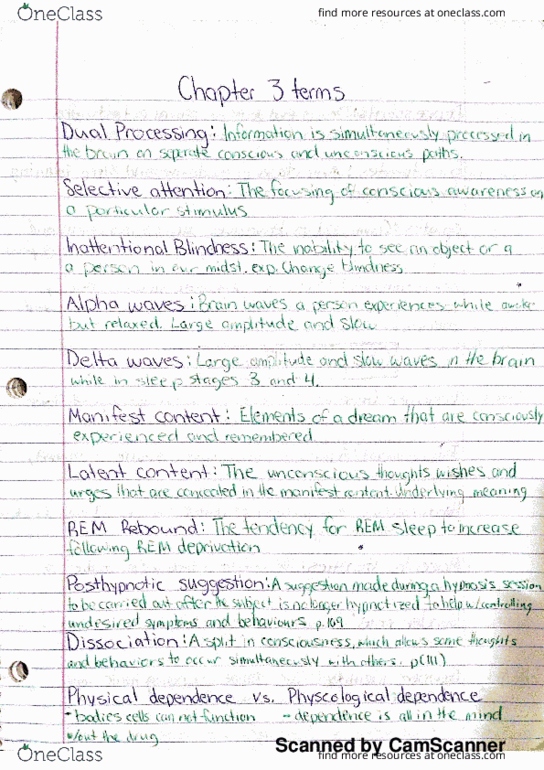 OneClass
find more resources at oneclass.com
Chapter 3 terms
Dual Processing: Information is simultaneously processed in
the brain on seperate conscious and unconscious paths.
Selective attention: The focusing of conscious awareness on
a particular stimulus
Inattentional Blindness: The inability to see an object or a
a person in our midst. exp. Change blindness
Alpha waves: Brain waves a person experiences while awake
but relaxed. Large amplitude and slow
Delta waves: Large amplitude and slow waves in the brain
while in sleep stages 3 and 4.
Manifest content: Elements of a dream that are consciously
experienced and remembered
Latent content: The unconscious thoughts wishes and
urges that are concealed in the manifest content. Underlying meaning
REM Rebound: The tendency for REM sleep to increase
following REM deprivation
Posthypnotic suggestion: A suggestion made during a hypnosis session
to be carried out after the subject is no longer hypnotized to help w/controlling
undesired symptoms and behaviours p.109
Dissociation: A split in consciousness, which allows some thoughts
and behaviors to occur simultaneously with others. p(111)
Physical dependence vs. Physcological dependence
- bodies cells can not function - dependence is all in the mind
w/out the drug
Scanned by CamScanner
OneClass
find more resources at oneclass.com